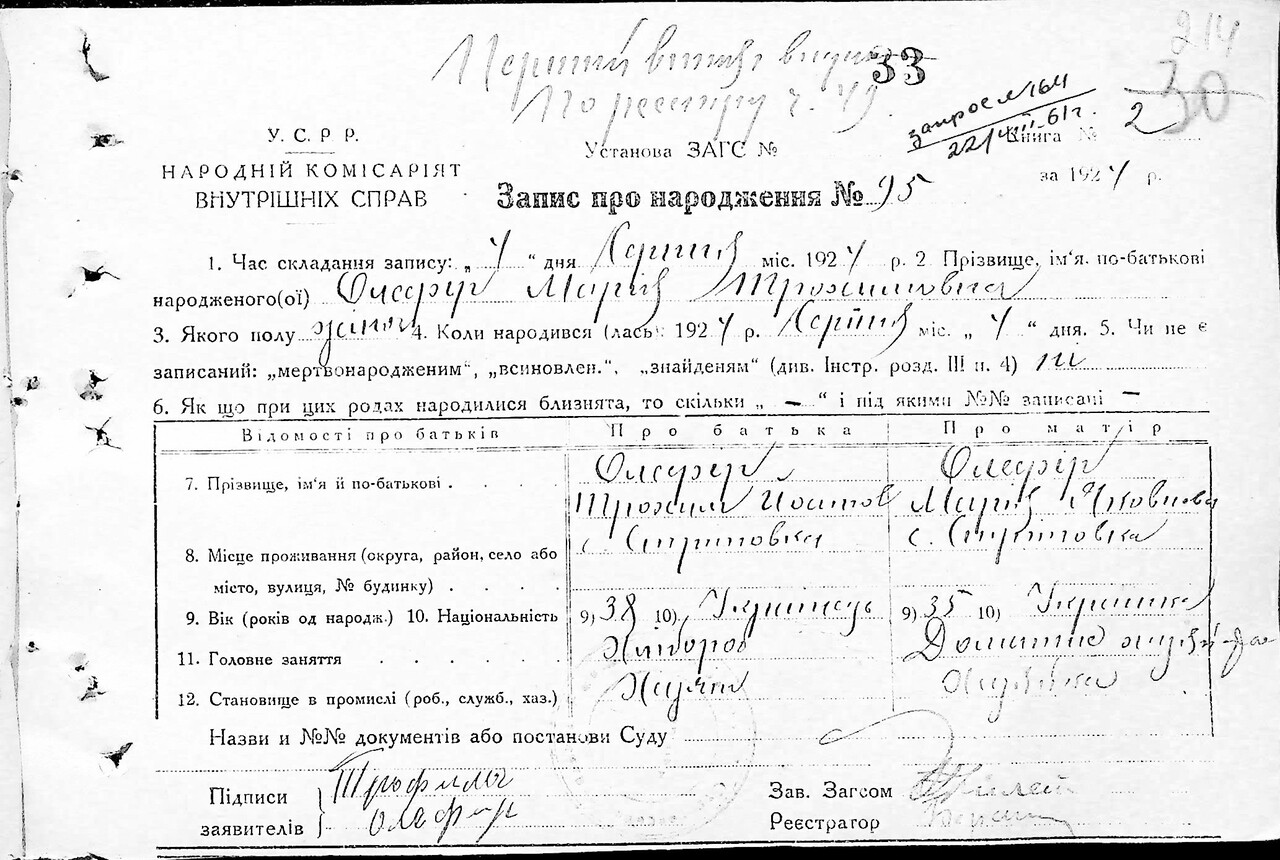 214
Перший витяг видано 33 30
по реєстру ч. 49
запрос №164
22/VIII-61г.
У. С. Р. Р.
НАРОДНІЙ КОМІСАРІЯТ
ВНУТРІШНІХ СПРАВ
Установа ЗАГС №
Книга № 2
за 1924 р.
Запис про народження № 95
1. Час складання запису: „ 4 “ дня Серпня міс. 1924 р. 2 Прізвище, ім'я. по-батькові
народженого(ої) Олефір Марія Трохимовна
3. Якого полу 4. Коли народився (лась) 1924 р. Серпня міс. „ 4 “ дня. 5. Чи не є
записаний: „мертвонародженим“, „всиновлен.“, „знайденям“ (див. Інстр. розд. III п. 4) ні
6. Як що при цих родах народилися близнята, то скільки „ — “ і під якими №№ записані —
Відомості про батьків Про батька Про матір
7. Прізвище, ім'я й по-батькові . . . . Олефір Олефір
Трохим Марія Яковновна
8. Місце проживання (округа, район, село або с. с.
місто, вулиця, № будинку) . . . .
9. Вік (років од народж.) 10. Національність 9) 38 10) Українець 9) 35 10) Українка
11. Головне заняття . . . . . Хлібороб Домашнє
12. Становище в промислі (роб., служб., хаз.) Хазяїн Хазяйка
Назви и №№ документів або постанови Суду
Підписи Трофимъ
заявителів Олефир
Зав. Загсом
Реєстрагор